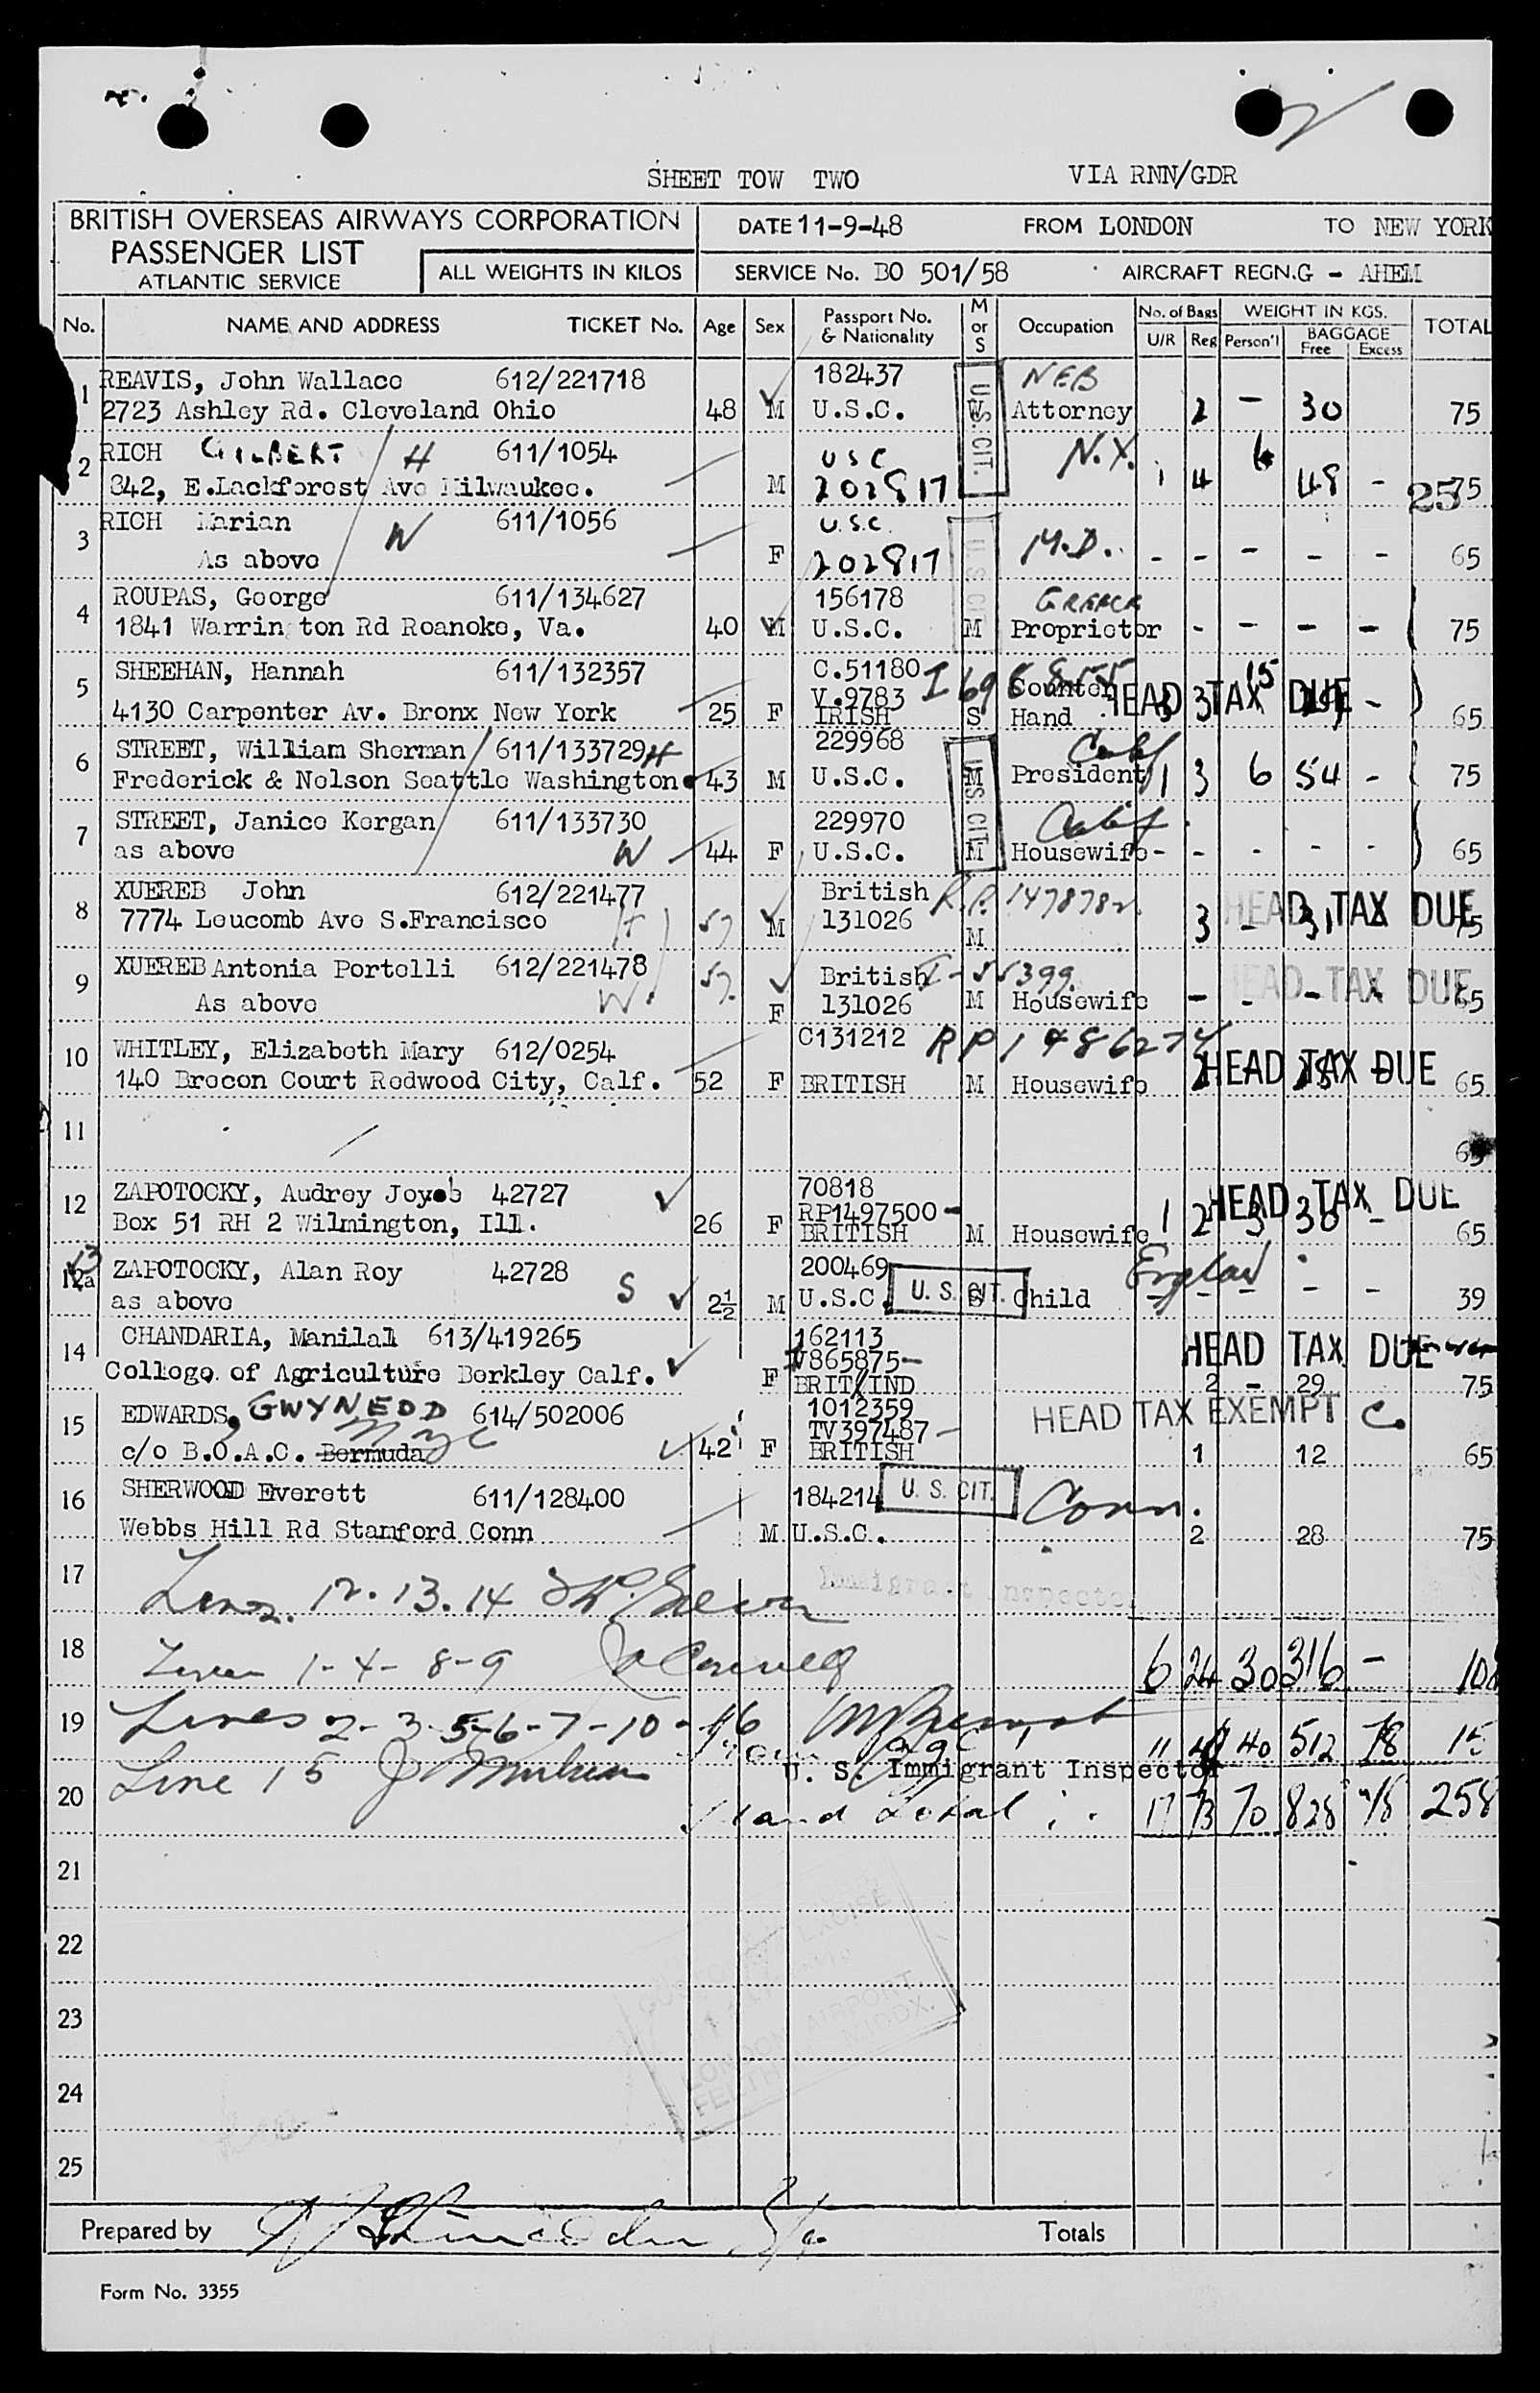 SHEET TOW TWO VIA RNN/GDR
BRITISH OVERSEAS AIRWAYS CORPORATION
PASSENGER LIST
ATLANTIC SERVICE
ALL WEIGHTS IN KILOS
DATE 11-9-48 FROM LONDON TO NEW YORK
SERVICE No. BO 501/58 AIRCRAFT REGN. G - AHEM
No. NAME AND ADDRESS TICKET No. Age Sex Passport No. & Nationality M or S Occupation No. of Bags U/R Reg WEIGHT IN KGS. Person'l BAGGAGE Free Excess TOTAL
1 REAVIS, John Wallace 612/221718 182437 NEB
2723 Ashley Rd. Cleveland Ohio 48 M U.S.C. Attorney 2 - 30 75
U.S. CIT.
2 RICH GILBERT H 611/1054 USC N.Y. 6
842, E.Lackforest Ave Milwaukee. M 202817 1 4 48 - 75
3 RICH Marian W 611/1056 U.S.C. M.D.
As above F 202817 - - - - - 65
U.S. CIT
4 ROUPAS, George 611/134627 156178 GREECE
1841 Warrin ton Rd Roanoke, Va. 40 M U.S.C. M Proprietor - - - - 75
5 SHEEHAN, Hannah 611/132357 C.51180 Counter 15 HEAD TAX DUE
V.9783
4130 Carpenter Av. Bronx New York 25 F IRISH S Hand 3 3 - 65
6 STREET, William Sherman 611/133729 H 229968 Calif
Frederick & Nelson Seattle Washington. 43 M U.S.C. M President 1 3 6 54 - 75
U.S. CIT
7 STREET, Janice Kergan 611/133730 229970 Calif.
as above W 44 F U.S.C. M Housewife - - - - - 65
8 XUEREB John 612/221477 British R.P. 147878
7774 Leucomb Ave S.Francisco H 57 M 131026 M 3 - 31 75
HEAD TAX DUE
9 XUEREB Antonia Portelli 612/221478 British I-55399
As above W. 57. F 131026 M Housewife - - - - 65
HEAD TAX DUE
10 WHITLEY, Elizabeth Mary 612/0254 C131212 RP 1486274
140 Brecon Court Redwood City, Calf. 52 F BRITISH M Housewife HEAD TAX DUE 65
11
12 ZAPOTOCKY, Audrey 42727 70818 HEAD TAX DUE
RP1497500-
Box 51 RH 2 Wilmington, Ill. 26 F BRITISH M Housewife 1 2 3 30 - 65
13 12a ZAPOTOCKY, Alan Roy 42728 200469 England
as above S 2½ M U.S.C. U.S. CIT. S Child - - - - - 39
14 CHANDARIA, Manilal 613/419265 162113 HEAD TAX DUE
V865875-
College of Agriculture Berkley Calf. F BRIT/IND 2 - 29 75
15 EDWARDS, GWYNEDD 614/502006 1012359 HEAD TAX EXEMPT C.
TV397487-
c/o B.O.A.C. Bermuda NYC 42 F BRITISH 1 12 65
16 SHERWOOD Everett 611/128400 184214 U. S. CIT. Conn.
Webbs Hill Rd Stamford Conn M U.S.C. 2 28 75
17 Immigrant Inspector
Lines. 12. 13. 14
18 Lines 1-4-8-9 6 24 30 316 -
19 Lines 2-3-5-6-7-10-16 11 40 512 15
20 Line 15 U. S. Immigrant Inspector
Grand Total : 17 73 70 828 258
21
22
23
24
25
Prepared by Totals
Form No. 3355